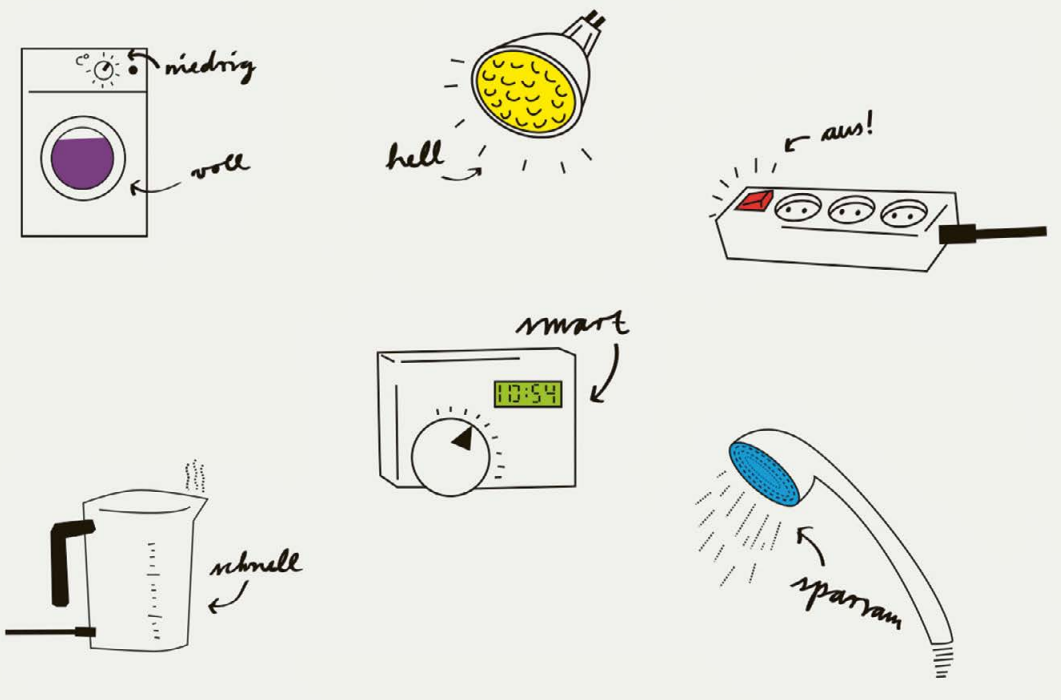 C°
niedrig
voll
hell
aus!
smart
10:54
schnell
sparsam